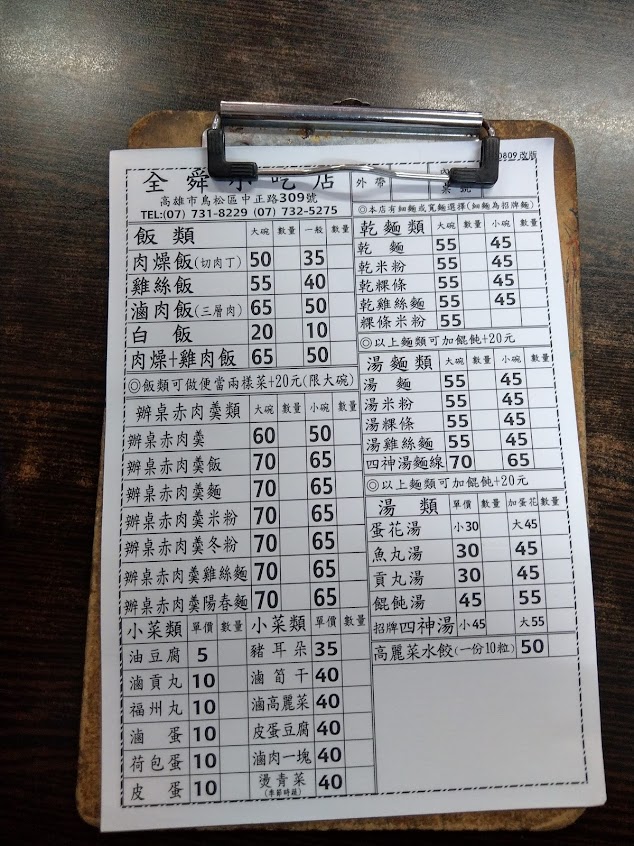 全舜小吃店
高雄市鳥松區中正路309號
TEL:(07) 731-8229 (07) 732-5275
飯類 大碗 數量 一般 數量
肉燥飯(切肉丁) 50 35
雞絲飯 55 40
滷肉飯(三層肉) 65 50
白飯 20 10
肉燥+雞肉飯 65 50
◎飯類可做便當兩樣菜+20元(限大碗)
辦桌赤肉羹類 大碗 數量 小碗 數量
辦桌赤肉羹 60 50
辦桌赤肉羹飯 70 65
辦桌赤肉羹麵 70 65
辦桌赤肉羹米粉 70 65
辦桌赤肉羹冬粉 70 65
辦桌赤肉羹雞絲麵 70 65
辦桌赤肉羹陽春麵 70 65
小菜類 單價 數量 小菜類 單價 數量
油豆腐 5 豬耳朵 35
滷貢丸 10 滷筍干 40
福州丸 10 滷高麗菜 40
滷蛋 10 皮蛋豆腐 40
荷包蛋 10 滷肉一塊 40
皮蛋 10 燙青菜 40
(季節時蔬)
0809改版
外帶
◎本店有細麵或寬麵選擇(細麵為招牌麵)
乾麵類 大碗 數量 小碗 數量
乾麵 55 45
乾米粉 55 45
乾粿條 55 45
乾雞絲麵 55 45
粿條米粉 55
◎以上麵類可加餛飩+20元
湯麵類 大碗 數量 小碗 數量
湯麵 55 45
湯米粉 55 45
湯粿條 55 45
湯雞絲麵 55 45
四神湯麵線 70 65
◎以上麵類可加餛飩+20元
湯類 單價 數量 加蛋花 數量
蛋花湯 小30 大45
魚丸湯 30 45
貢丸湯 30 45
餛飩湯 45 55
招牌四神湯 小45 大55
高麗菜水餃(一份10粒) 50